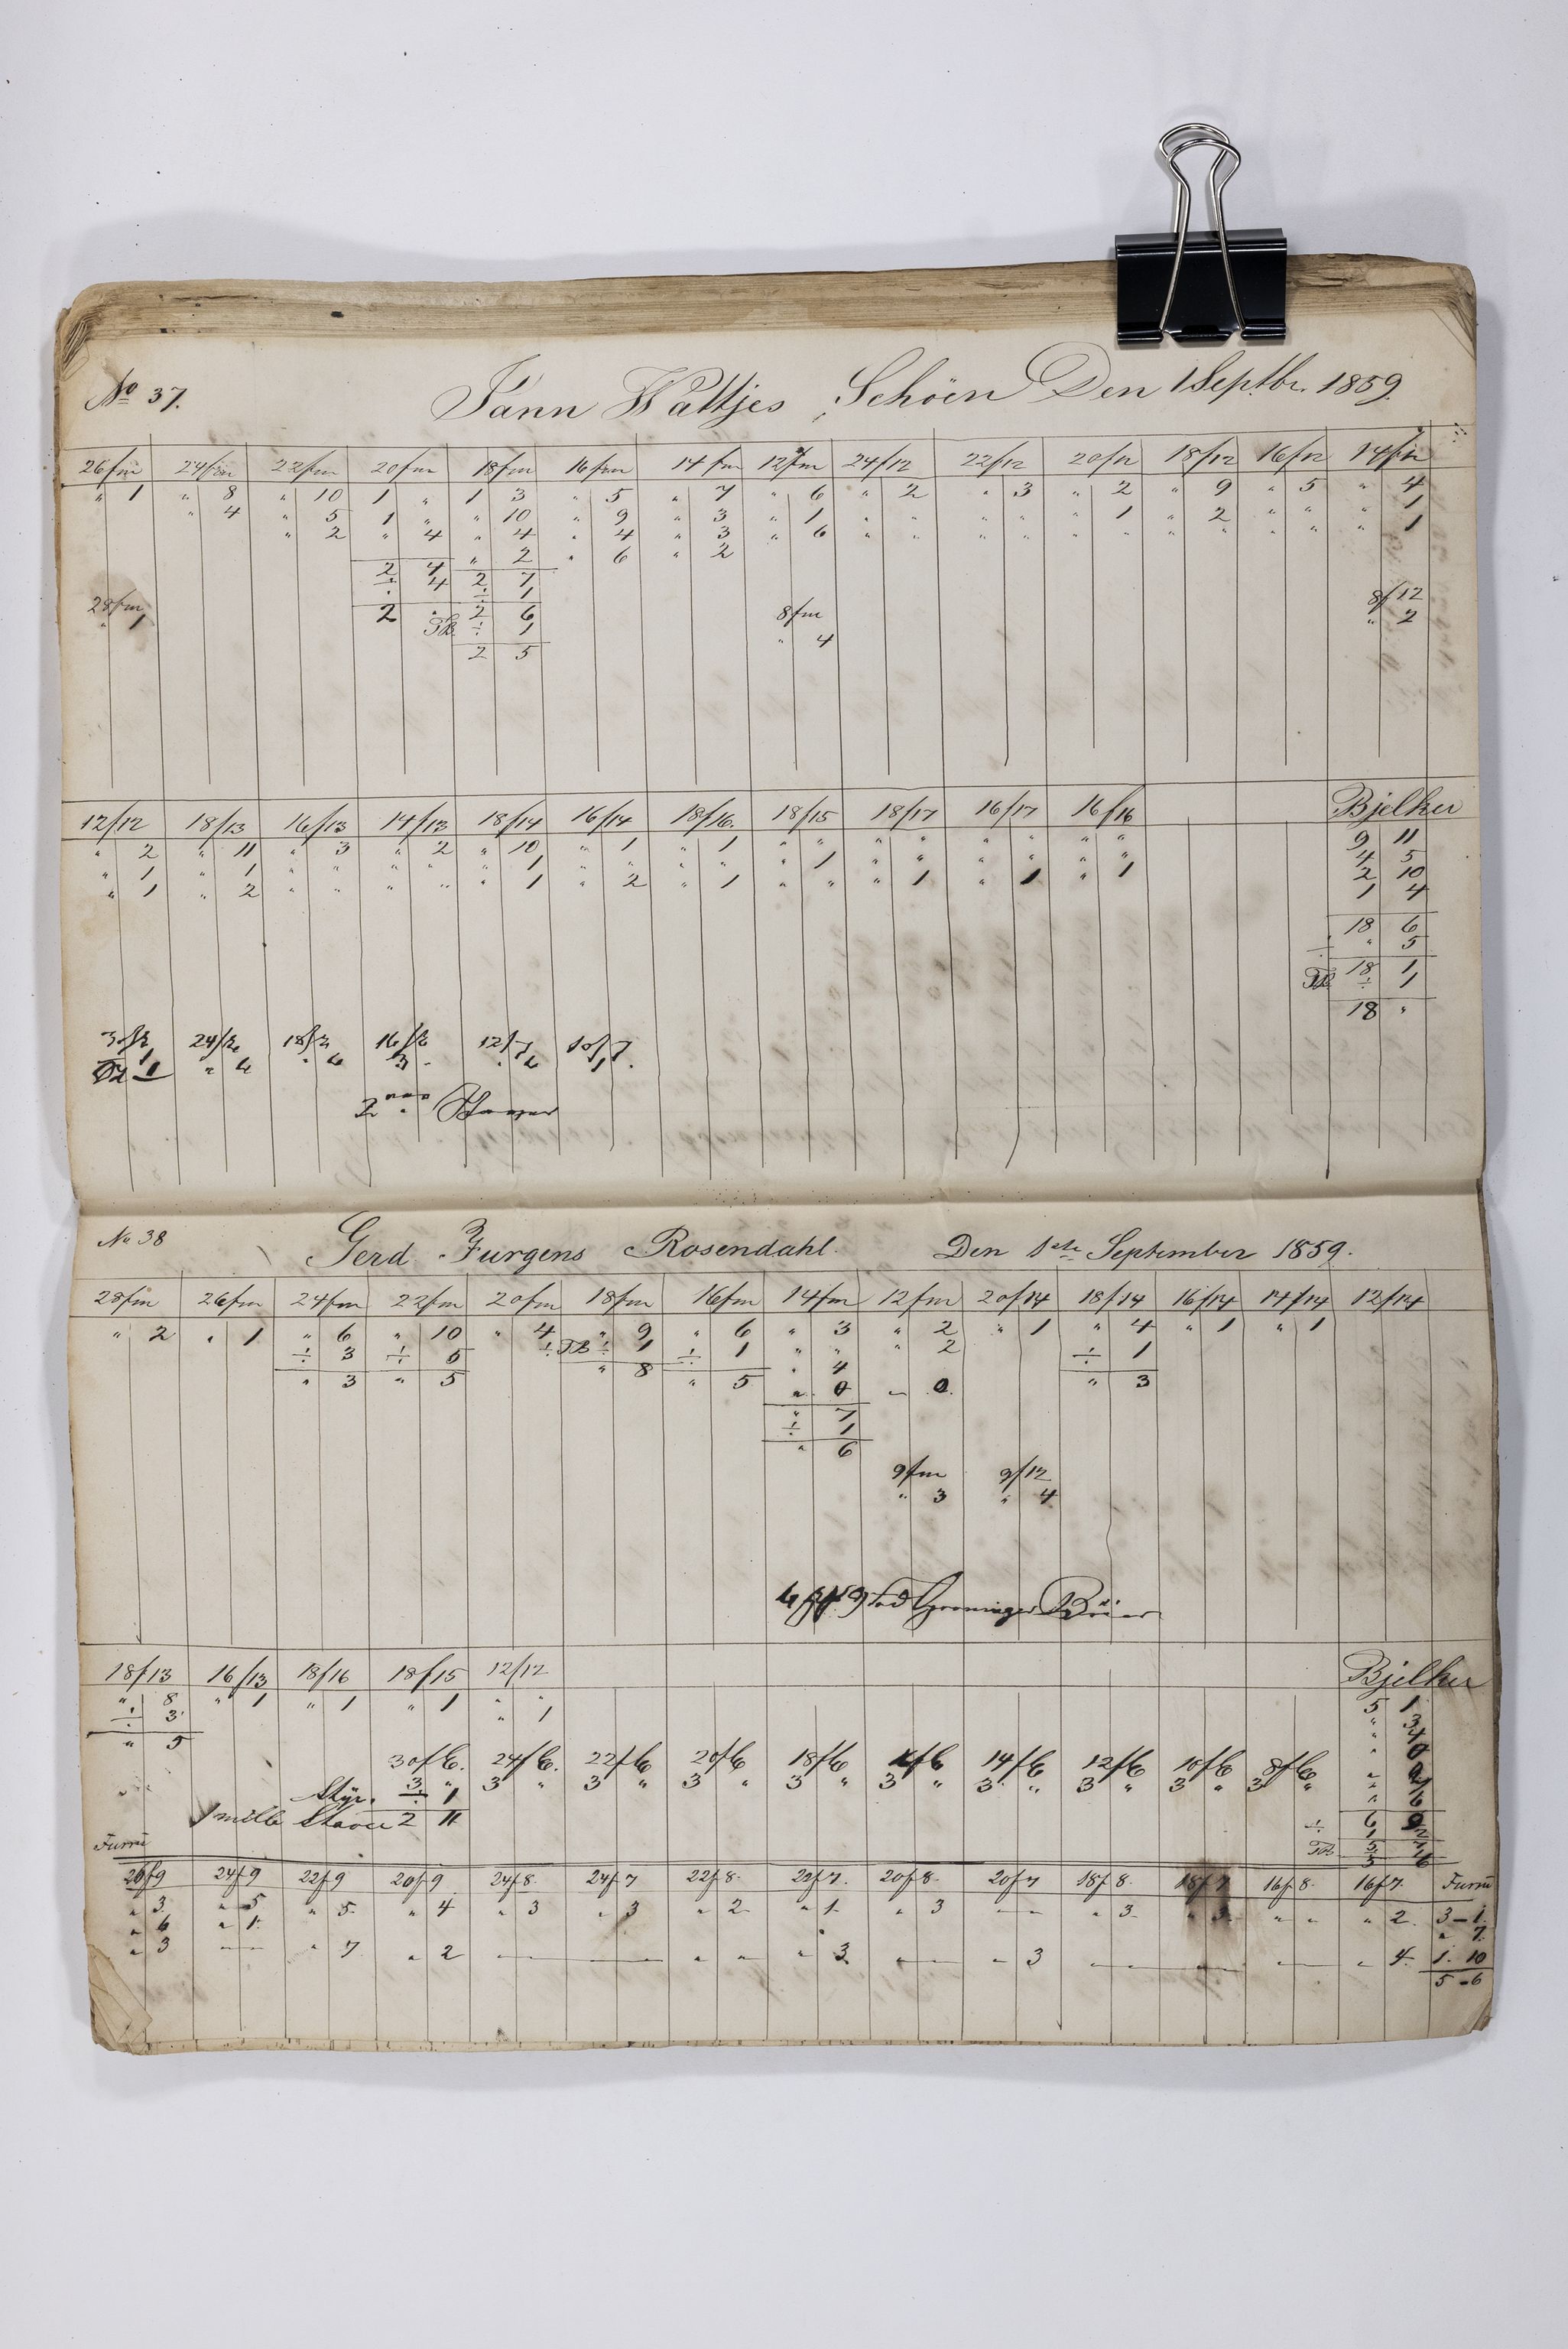 No 37. Jann Wattjes Schöen Den 1 Septbr. 1859.
26/fm 24/fm 22/fm 20/fm 18/fm 16/fm 14/fm 12/fm 24/12 22/12 20/12 18/12 16/12 14/12
" 1 " 8 " 10 1 " 1 3 " 5 " 7 " 6 " 2 " 3 " 2 " 9 " 5 " 4
" 4 " 5 1 " " 10 " 9 " 3 " 1 " " " " " 1 " 2 " " " 1
" 2 " 4 " 4 " 4 " 3 " 6 " " " " " " " " " " " 1
" 2 " 6 " 2
2 4 2 7
÷ 4 ÷ 1
28/fm 2 " 2 6 8/fm 8/12
" 1 TB ÷ 1 " 4 " 2
2 5
12/12 18/13 16/13 14/13 18/14 16/14 18/16. 18/15 18/17 16/17 16/16 Bjelker
" 2 " 11 " 3 " 2 " 10 " 1 " 1 " " " " " " " " 9 11
" 1 " 1 " " " " " 1 " " " " " 1 " " " " " " 4 5
" 1 " 2 " " " " " 1 " 2 " 1 " " " 1 " 1 " 1 2 10
1 4
18 6
÷ " 5
18 1
TB ÷ 1
18 "
No 38 Gerd Jurgens Rosendahl. Den 1ste September 1859.
28/fm 26/fm 24/fm 22/fm 20/fm 18/fm 16/fm 14/fm 12/fm 20/14 18/14 16/14 14/14 12/14
" 2 " 1 " 6 " 10 " 4 " 9 " 6 " 3 " 2 " 1 " 4 " 1 " 1
÷ 3 ÷ 5 ÷ TB ÷ 1 ÷ 1 " " " 2 ÷ 1
" 3 " 5 " 8 " 5 " 4 " 3
" 0 " 0
" 7
÷ 1
" 6
9/fm 9/12
" 3 " 4
18/13 16/13 18/16 18/15 12/12 Bjelker
" 8 " 1 " 1 " 1 " " 5 1
÷ 3 " 1
" 5
30/6. 24/6. 22/6 20/6 18/6 16/6 14/6 12/6 10/6 8/6
3 " 3 " 3 " 3 " 3 " 3 " 3 " 3 " 3 " 3 "
Styr. ÷ 1
1 mille Staver 2 11
Furru
26/9 24/9 22/9 20/9 24/8 24/7 22/8. 22/7. 20/8. 20/7 18/8. 18/7 16/8. 16/7. Furru
" 3 " 5 " 5. " 4 " 3 " 3 " 2. " 1. " 3 — " 3. " 3. " " " 2. 3 – 1.
" 6 " 1. " 7.
" 3 — " 7 " 2 — — " " " 3. — " 3 — — — " 4. 1. 10
5 - 6